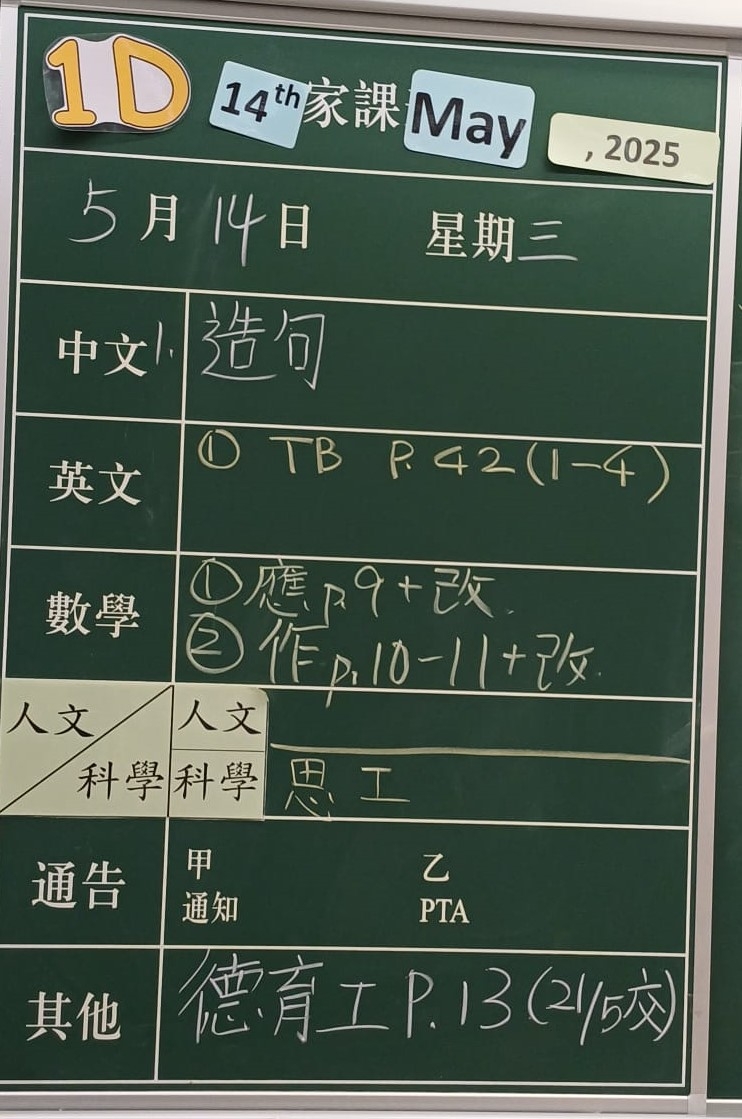 1D 14th 家課 May , 2025
5月14日 星期三
中文 1. 造句
英文 ① TB P.42(1-4)
數學 ① 應p.9+改
② 作p.10-11+改
人文 人文
科學 科學 思工
通告 甲 乙
通知 PTA
其他 德育工P.13(21/5交)